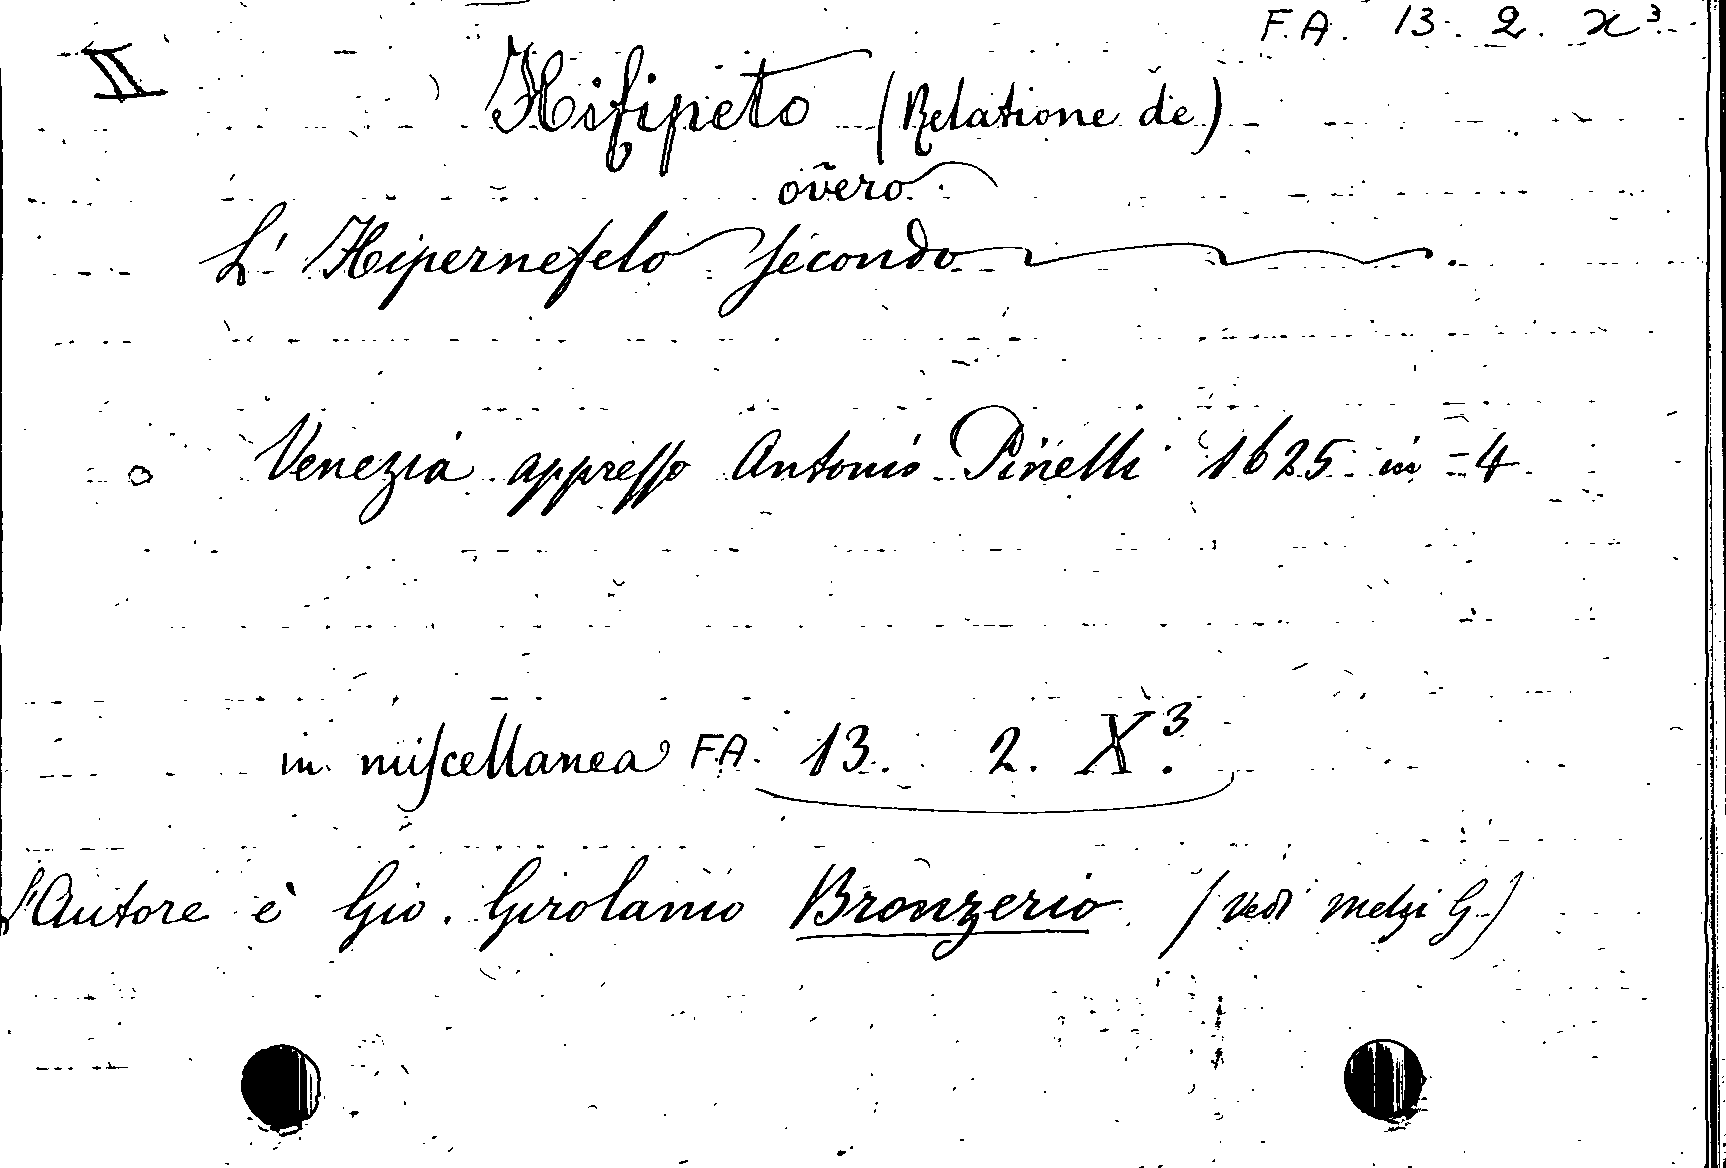 F.A. 13. 2. X³.
II
Hisipeto (Relatione de)
overo
L' Hipernefelo secondo
Venezia appresso Antonio Pinelli 1625 in = 4
in miscellanea F.A. 13. 2. X.³
l'Autore è Gio. Girolamo Bronzerio (Vedi Melzi G.)